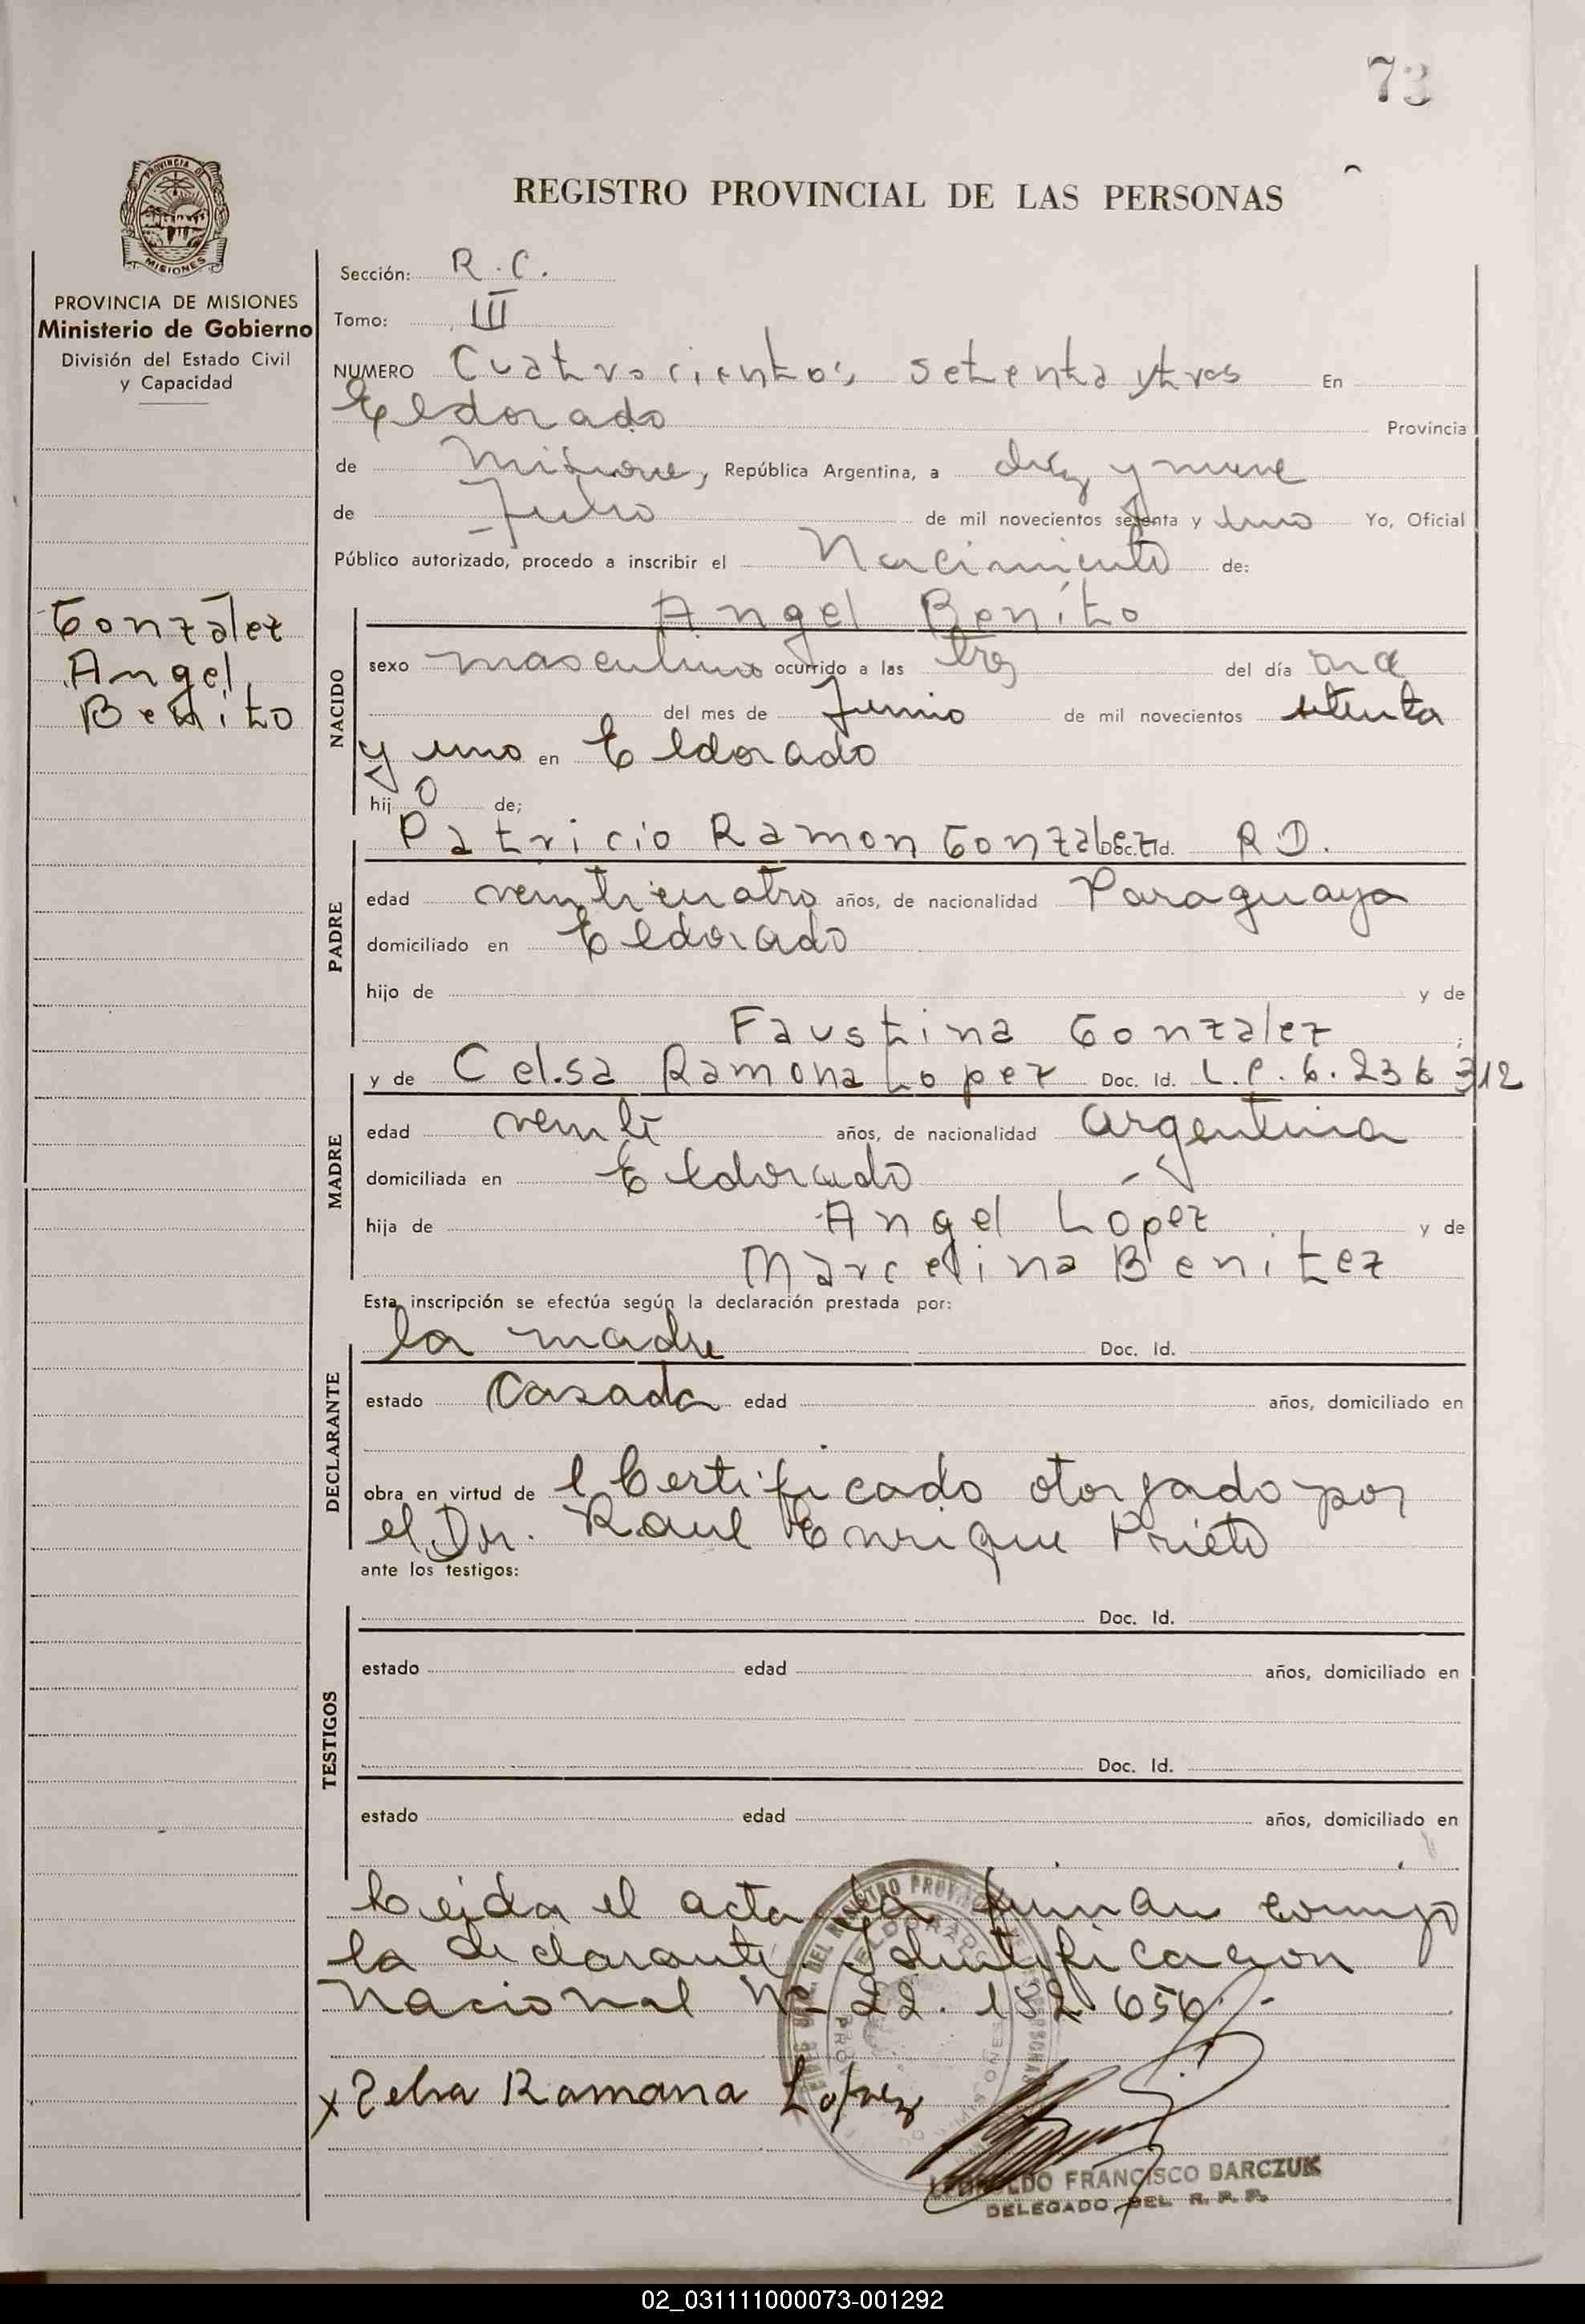 73
REGISTRO PROVINCIAL DE LAS PERSONAS
PROVINCIA DE
MISIONES
PROVINCIA DE MISIONES
Ministerio de Gobierno
División del Estado Civil
y Capacidad
González
Angel
Benito
Sección: R.C.
Tomo: III
NUMERO Cuatrocientos setenta y tres En
Eldorado Provincia
de Misiones, República Argentina, a diez y nueve
de Julio de mil novecientos setenta y uno Yo, Oficial
Público autorizado, procedo a inscribir el Nacimiento de:
Angel Benito
NACIDO
sexo masculino ocurrido a las tres del día once
del mes de Junio de mil novecientos setenta
y uno en Eldorado
hij o de;
PADRE
Patricio Ramon Gonzalez Doc. Id. R D.
edad veinticuatro años, de nacionalidad Paraguaya
domiciliado en Eldorado
hijo de y de
Faustina Gonzalez ;
MADRE
y de Celsa Ramona Lopez Doc. Id. L.C. 6.236 312
edad veinti años, de nacionalidad argentina
domiciliada en Eldorado
hija de Angel López y de
Marcelina Benitez
Esta inscripción se efectúa según la declaración prestada por:
DECLARANTE
la madre Doc. Id.
estado Casada edad años, domiciliado en
obra en virtud de l Certificado otorgado por
el Dr. Raul Enrique Prieto
ante los testigos:
TESTIGOS
Doc. Id.
estado edad años, domiciliado en
Doc. Id.
estado edad años, domiciliado en
Leida el acta la firman conmigo
la declarante. Identificacion
Nacional Nº 22.182.656.-
x Zelsa Ramana Lopez
ELDORADO
LEOPOLDO FRANCISCO BARCZUK
DELEGADO DEL R. P. P.
02_031111000073-001292